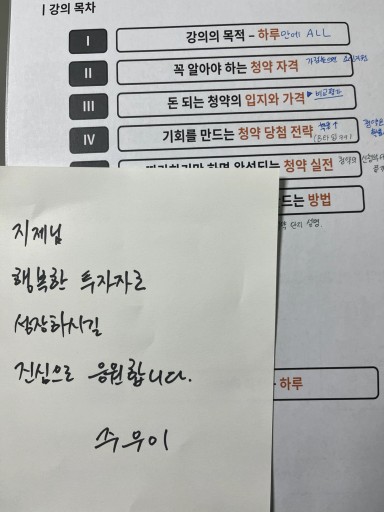 | 강의 목차
I 강의의 목적 – 하루안에 ALL
II 꼭 알아야 하는 청약 자격
III 돈 되는 청약의 입지와 가격 ▶ 비교평가
IV 기회를 만드는 청약 당첨 전략
청약 실전
드는 방법
단지 설명
하루
지제님
행복한 투자자로
성장하시길
진심으로 응원합니다.
주우이